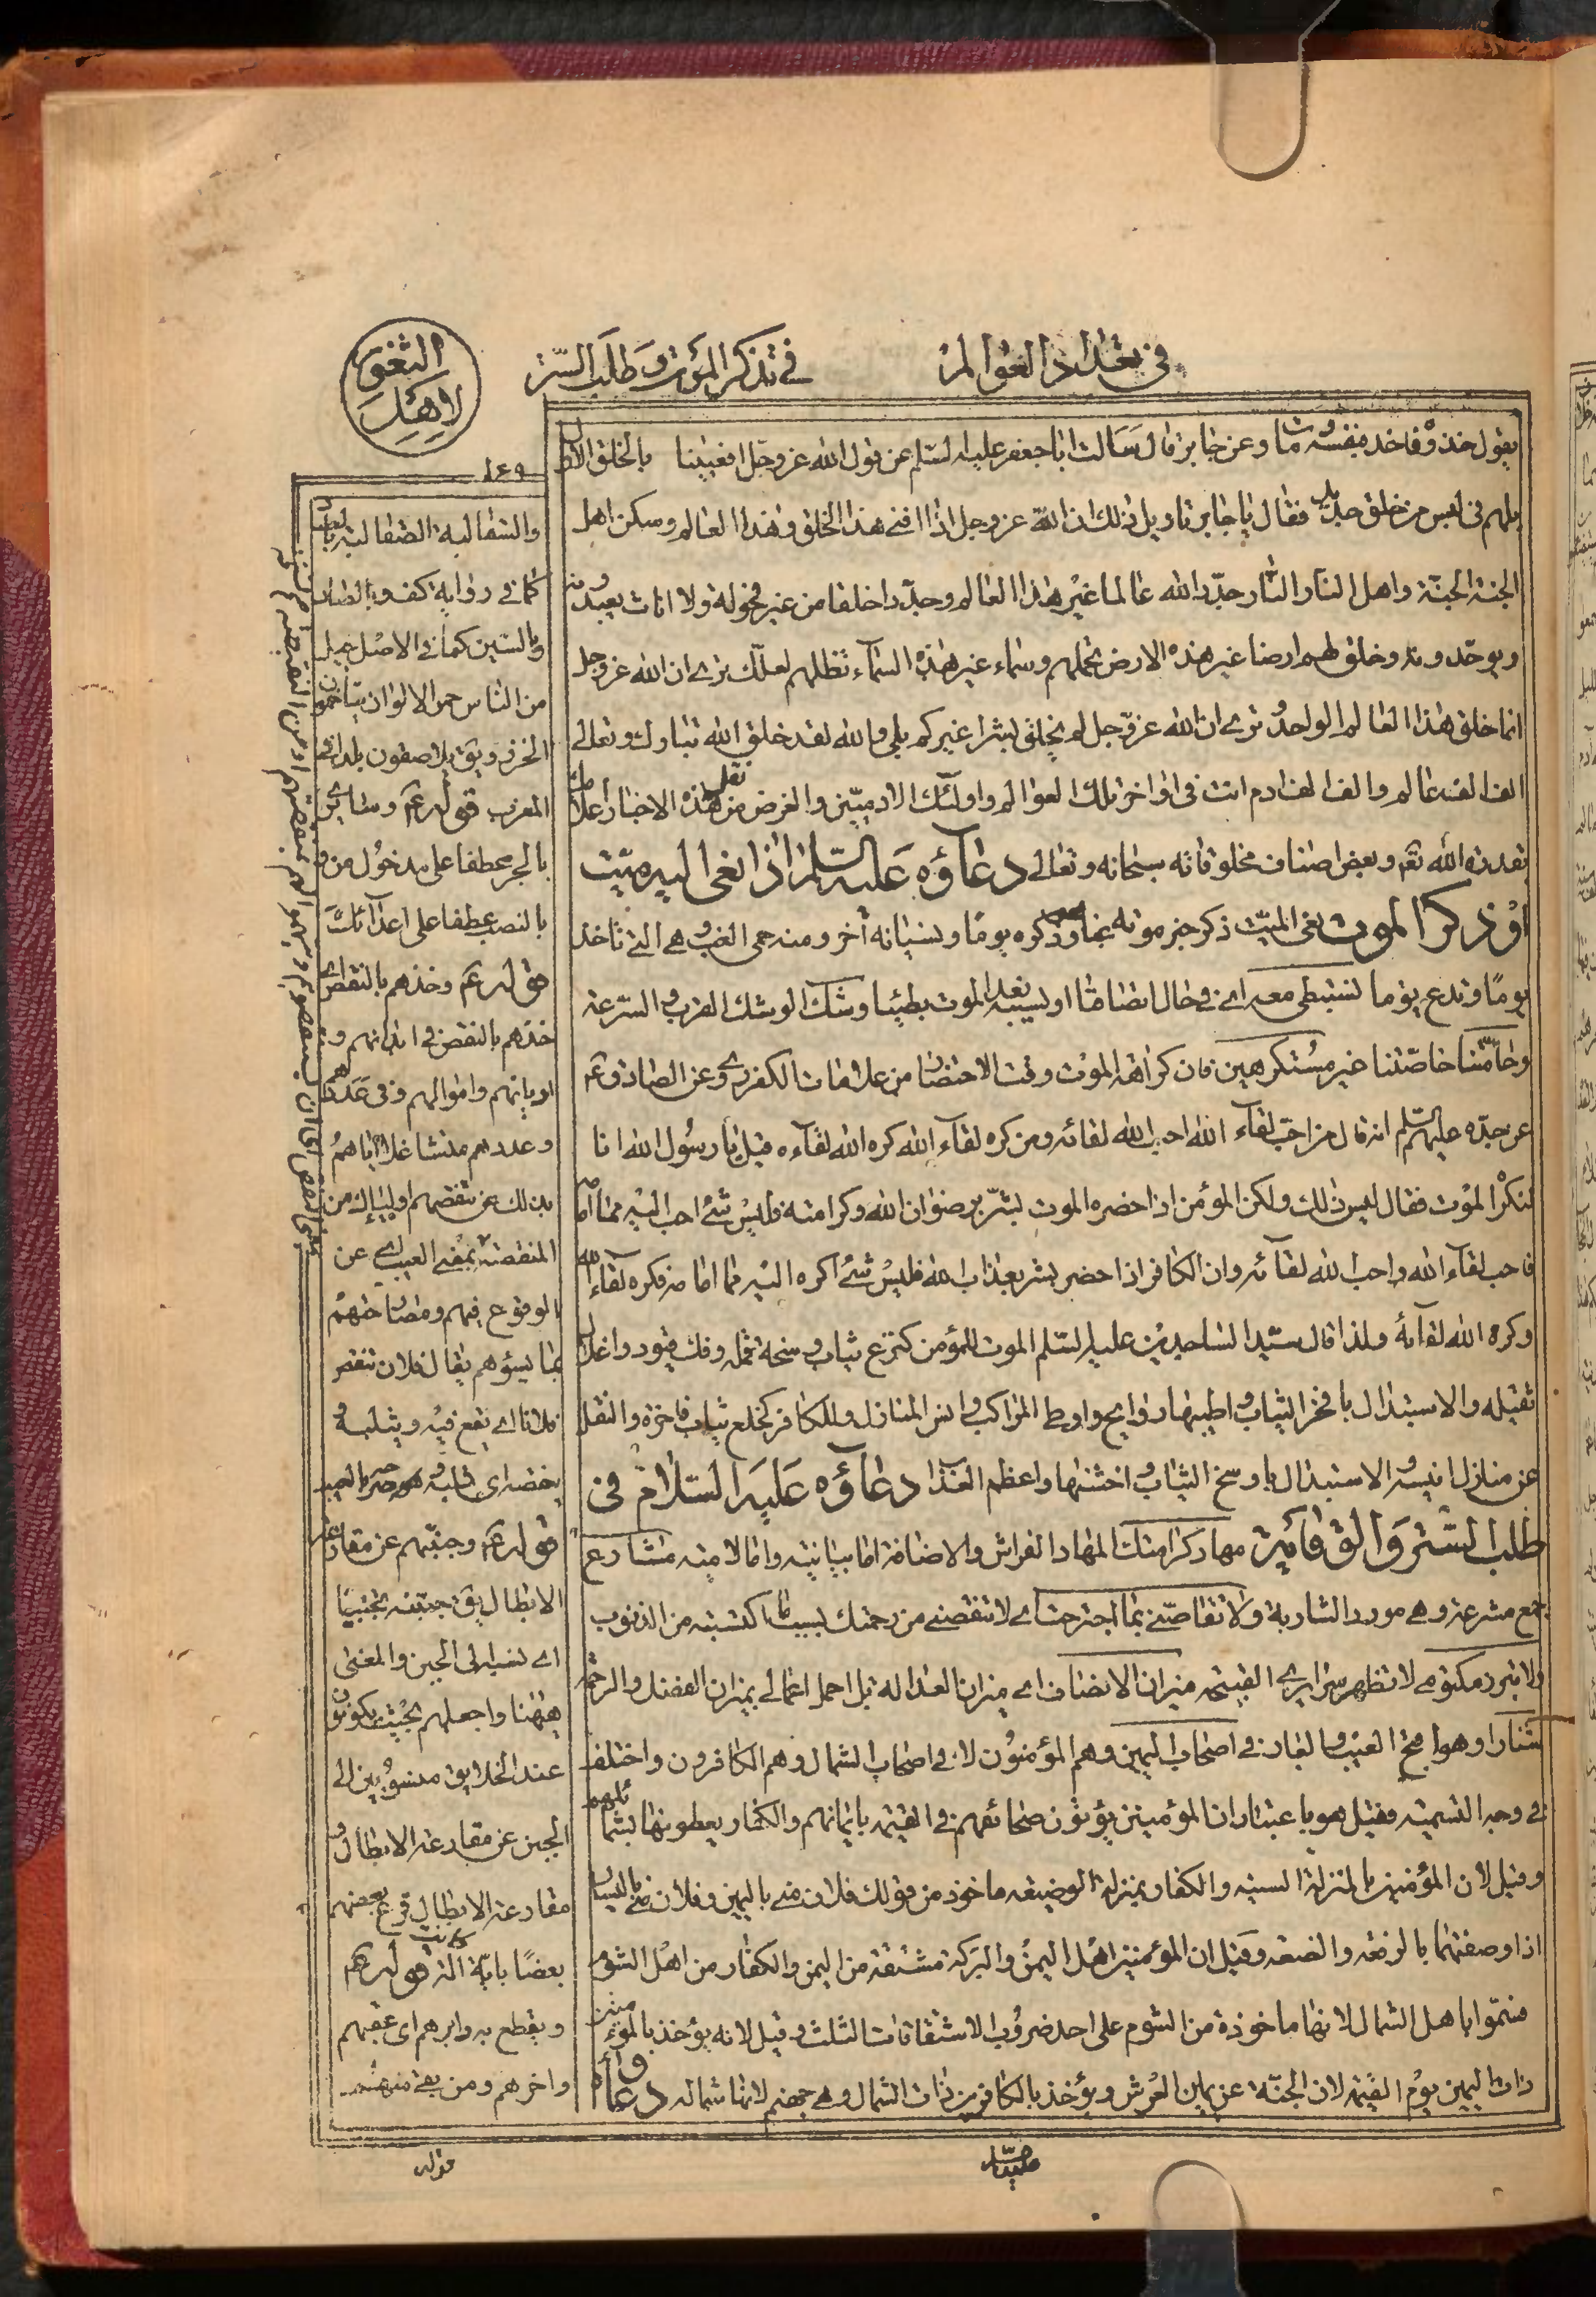 في تعداد العوالم
في تذكر الموت وطلب الستر
الثغور
لاهل
١٤٩
يقول خذوه فاخد بنفسه وعن جابر قال سالت ابا جعفر عليه السلم عن قول الله عز وجل افعيينا بالخلق الاول
بل هم في لبس من خلق جديد فقال يا جابر تاويل ذلك ان الله عز وجل اذا افنى هذا الخلق وهذا العالم وسكن اهل
الجنة الجنة واهل النار النار جدد الله عالما غير هذا العالم وجدد خلقا من غير فحولة ولا اناث يعبدونه
ويوحدونه وخلق لهم ارضا غير هذه الارض تحملهم وسماء غير هذه السماء تظلهم لعلك ترى ان الله عز وجل
انما خلق هذا العالم الواحد وترى ان الله عز وجل لم يخلق بشرا غيركم بلى والله لقد خلق الله تبارك وتعالى
الف الف عالم والف الف ادم انت في اواخر تلك العوالم واولئك الادميين والغرض من نقل هذه الاخبار اعلامك
بقدرة الله تعم وبعض اصناف مخلوقاته سبحانه وتعالى دعاؤه عليه السلم اذا نعي اليه ميت
او ذكر الموت نعى الميت ذكر خبر موته وذكره يوما ونسيانه آخر ومنه حمى الغب وهي التي تاخذ
يوما وتدع يوما نستبطئ معه اى في حال اتصافنا او بسببه الموت بطيئا وشك الوشك القرب والسرعة
وحامّتنا خاصّتنا غير مستكرهين فان كراهة الموت وقت الاحتضار من علامات الكفر وعن الصادق ع
عن جده عليهم السلم انه قال من احب لقاء الله احب الله لقائه ومن كره لقاء الله كره الله لقاءه قيل يا رسول الله انا
لنكره الموت فقال ليس ذلك ولكن المؤمن اذا حضره الموت بشر برضوان الله وكرامته فليس شئ احب اليه مما امامه
فاحب لقاء الله واحب الله لقائه وان الكافر اذا حضر بشر بعذاب الله فليس شئ اكره اليه مما امامه فكره لقاء الله
وكره الله لقاءه ولذا قال سيد الساجدين عليه السلم الموت للمؤمن كنزع ثياب وسخة قملة وفك قيود واغلال
ثقيله والاستبدال بافخر الثياب واطيبها روايح واوطا المراكب وانس المنازل وللكافر كخلع ثياب فاخرة والنقل
عن منازل انيسه والاستبدال باوسخ الثياب واخشنها واعظم العذاب دعاؤه عليه السلام في
طلب الستر والوقاية مهاد كرامتك المهاد الفراش والاضافة اما بيانيه واما لاميه مشارع
جمع مشرعة وهي مورد الشاربة ولا تقاصني بما اجترحت اى لا تنقصني من رحمتك بسبب ما اكتسبته من الذنوب
ولا تبرز مكتومي لا تظهر سرايرى القيمة ميزان الانصاف اى ميزان العدالة بل احمل اعمالي بميزان الفضل والرحمة
شنارا وهو اقبح العيب والعار في اصحاب اليمين وهم المؤمنون لا في اصحاب الشمال وهم الكافرون واختلف
في وجه التسميه فقيل هو باعتبار ان المؤمنين يؤتون صحائفهم في القيمة بايمانهم والكفار يعطونها بشمائلهم
وقيل لان المؤمنين بالمنزلة السنيه والكفار بمنزلة الوضيعه ماخوذ من قولك فلان مني باليمين وفلان مني باليسار
اذا وصفتهما بالرفعه والضعه وقيل ان المؤمنين اهل اليمن والبركة مشتقة من اليمن والكفار من اهل الشوم
فسموا باهل الشمال لانها ماخوذة من الشوم على احد ضروب الاشتقاقات الثلث وقيل لانه يؤخذ بالمؤمنين
ذات اليمين يوم القيمة لان الجنة عن يمين العرش ويؤخذ بالكافرين ذات الشمال وهي جهنم لانها شماله دعاؤه
والسقالبة الصقالبة بالصاد
كما في رواية كف وبالصاد
وبالسين كما في الاصل جيل
من الناس حمر الالوان يتاخمون
الخزر ويق يلاصقون بلدانهم
المغرب قوله ع وساير
بالجر عطفا على مدخول من
بالنصب عطفا على اعدائك
قوله ع وخذهم بالنقص
خذهم بالنقص في ابدانهم و
اديانهم واموالهم وفي عددهم
وعددهم منشاغلا اياهم
بذلك عن تنقصهم اولياءك من
المنقصة بمعنى العيب اى عن
الوقوع فيهم
بما يسؤهم يقال فلان تنقص
فلانا اى يقع فيه ويثلبه
قوله ع وجبنهم عن مقارعة
الابطال يق جبنته تجبينا
اى نسبه الى الجبن والمعنى
ههنا واجعلهم بحيث يكونون
عند الخلايق منسوبين الى
الجبن عن مقارعة الابطال و
مقارعة الابطال قرع بعضهم
بعضا باية آلة كانت قوله ع
ويقطع به دابرهم اى عقبهم
واخرهم ومن بقي منهم
قوله